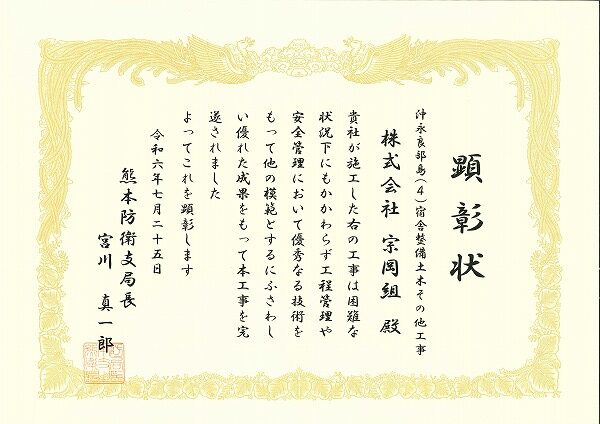 顕彰状
沖永良部島(4)宿舎整備土木その他工事
株式会社 宗岡組 殿
貴社が施工した右の工事は困難な
状況下にもかかわらず工程管理や
安全管理において優秀なる技術を
もって他の模範とするにふさわし
い優れた成果をもって本工事を完
遂されました
よってこれを顕彰します
令和六年七月二十五日
熊本防衛支局長
宮川 真一郎